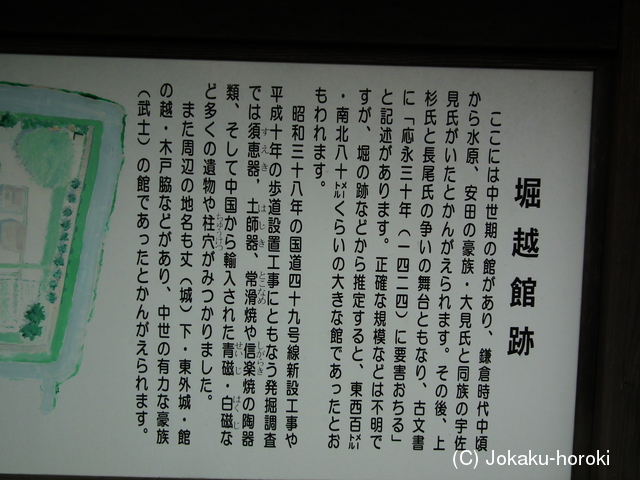 堀越館跡
ここには中世期の館があり、鎌倉時代中頃
から水原、安田の豪族・大見氏と同族の宇佐
見氏がいたとかんがえられます。その後、上
杉氏と長尾氏の争いの舞台ともなり、古文書
に「応永三十年（一四二四）に要害おちる」
と記述があります。正確な規模などは不明で
すが、堀の跡などから推定すると、東西百㍍
・南北八十㍍くらいの大きな館であったとお
もわれます。
昭和三十八年の国道四十九号線新設工事や
平成十年の歩道設置工事にともなう発掘調査
では須恵器，土師器、常滑焼や信楽焼の陶器
類、そして中国から輸入された青磁・白磁な
ど多くの遺物や柱穴がみつかりました。
また周辺の地名も丈（城）下・東外城・館
の越・木戸脇などがあり、中世の有力な豪族
（武士）の館であったとかんがえられます。
(C) Jokaku-horoki